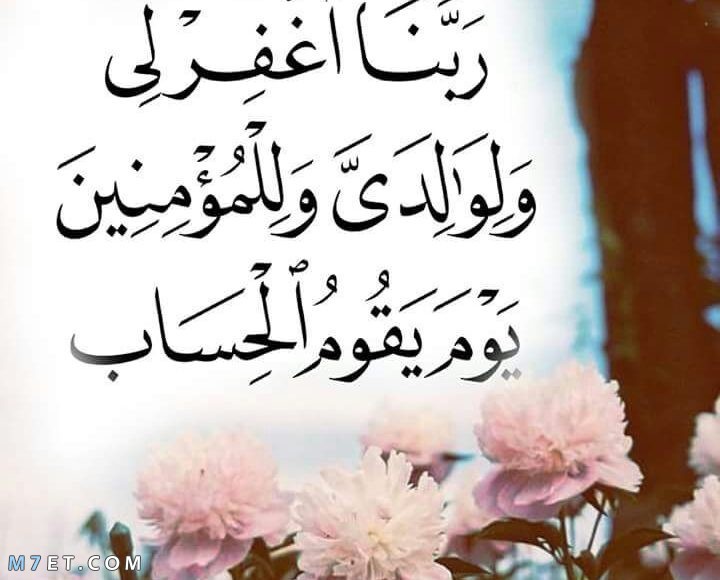 رَبَّنَا ٱغْفِرْ لِى
وَلِوَٰلِدَىَّ وَلِلْمُؤْمِنِينَ
يَوْمَ يَقُومُ ٱلْحِسَاب
M7ET.COM